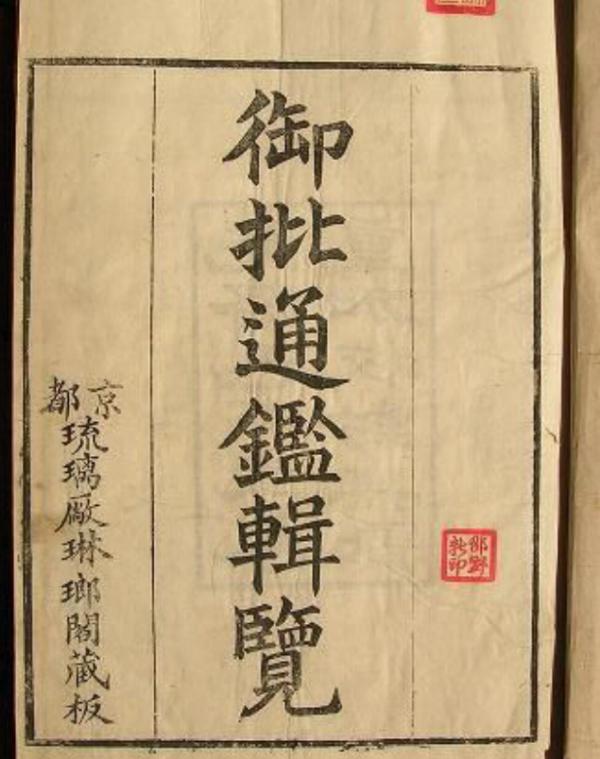 御批通鑑輯覽
京都琉璃厰琳瑯閣藏板